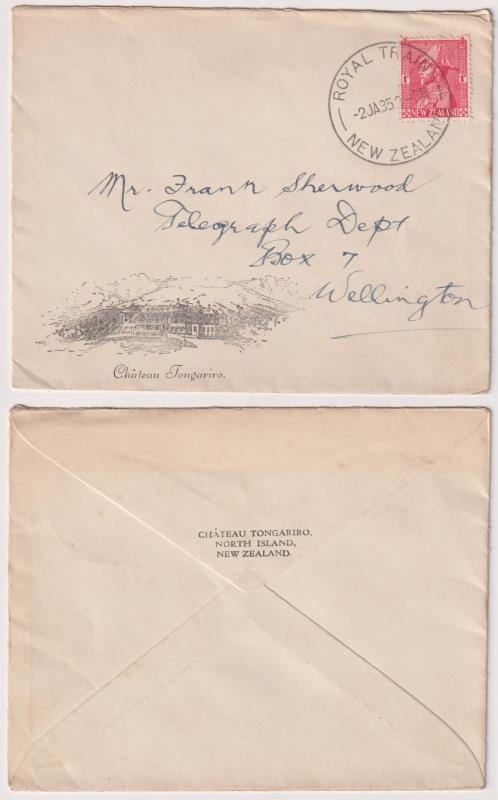 ROYAL TRAIN
-2JA35
NEW ZEALAND
1D 1D
NEW ZEALAND
Mr. Frank Sherwood
Telegraph Dept
Box 7
Wellington
Château Tongariro.
CHÂTEAU TONGARIRO,
NORTH ISLAND,
NEW ZEALAND.